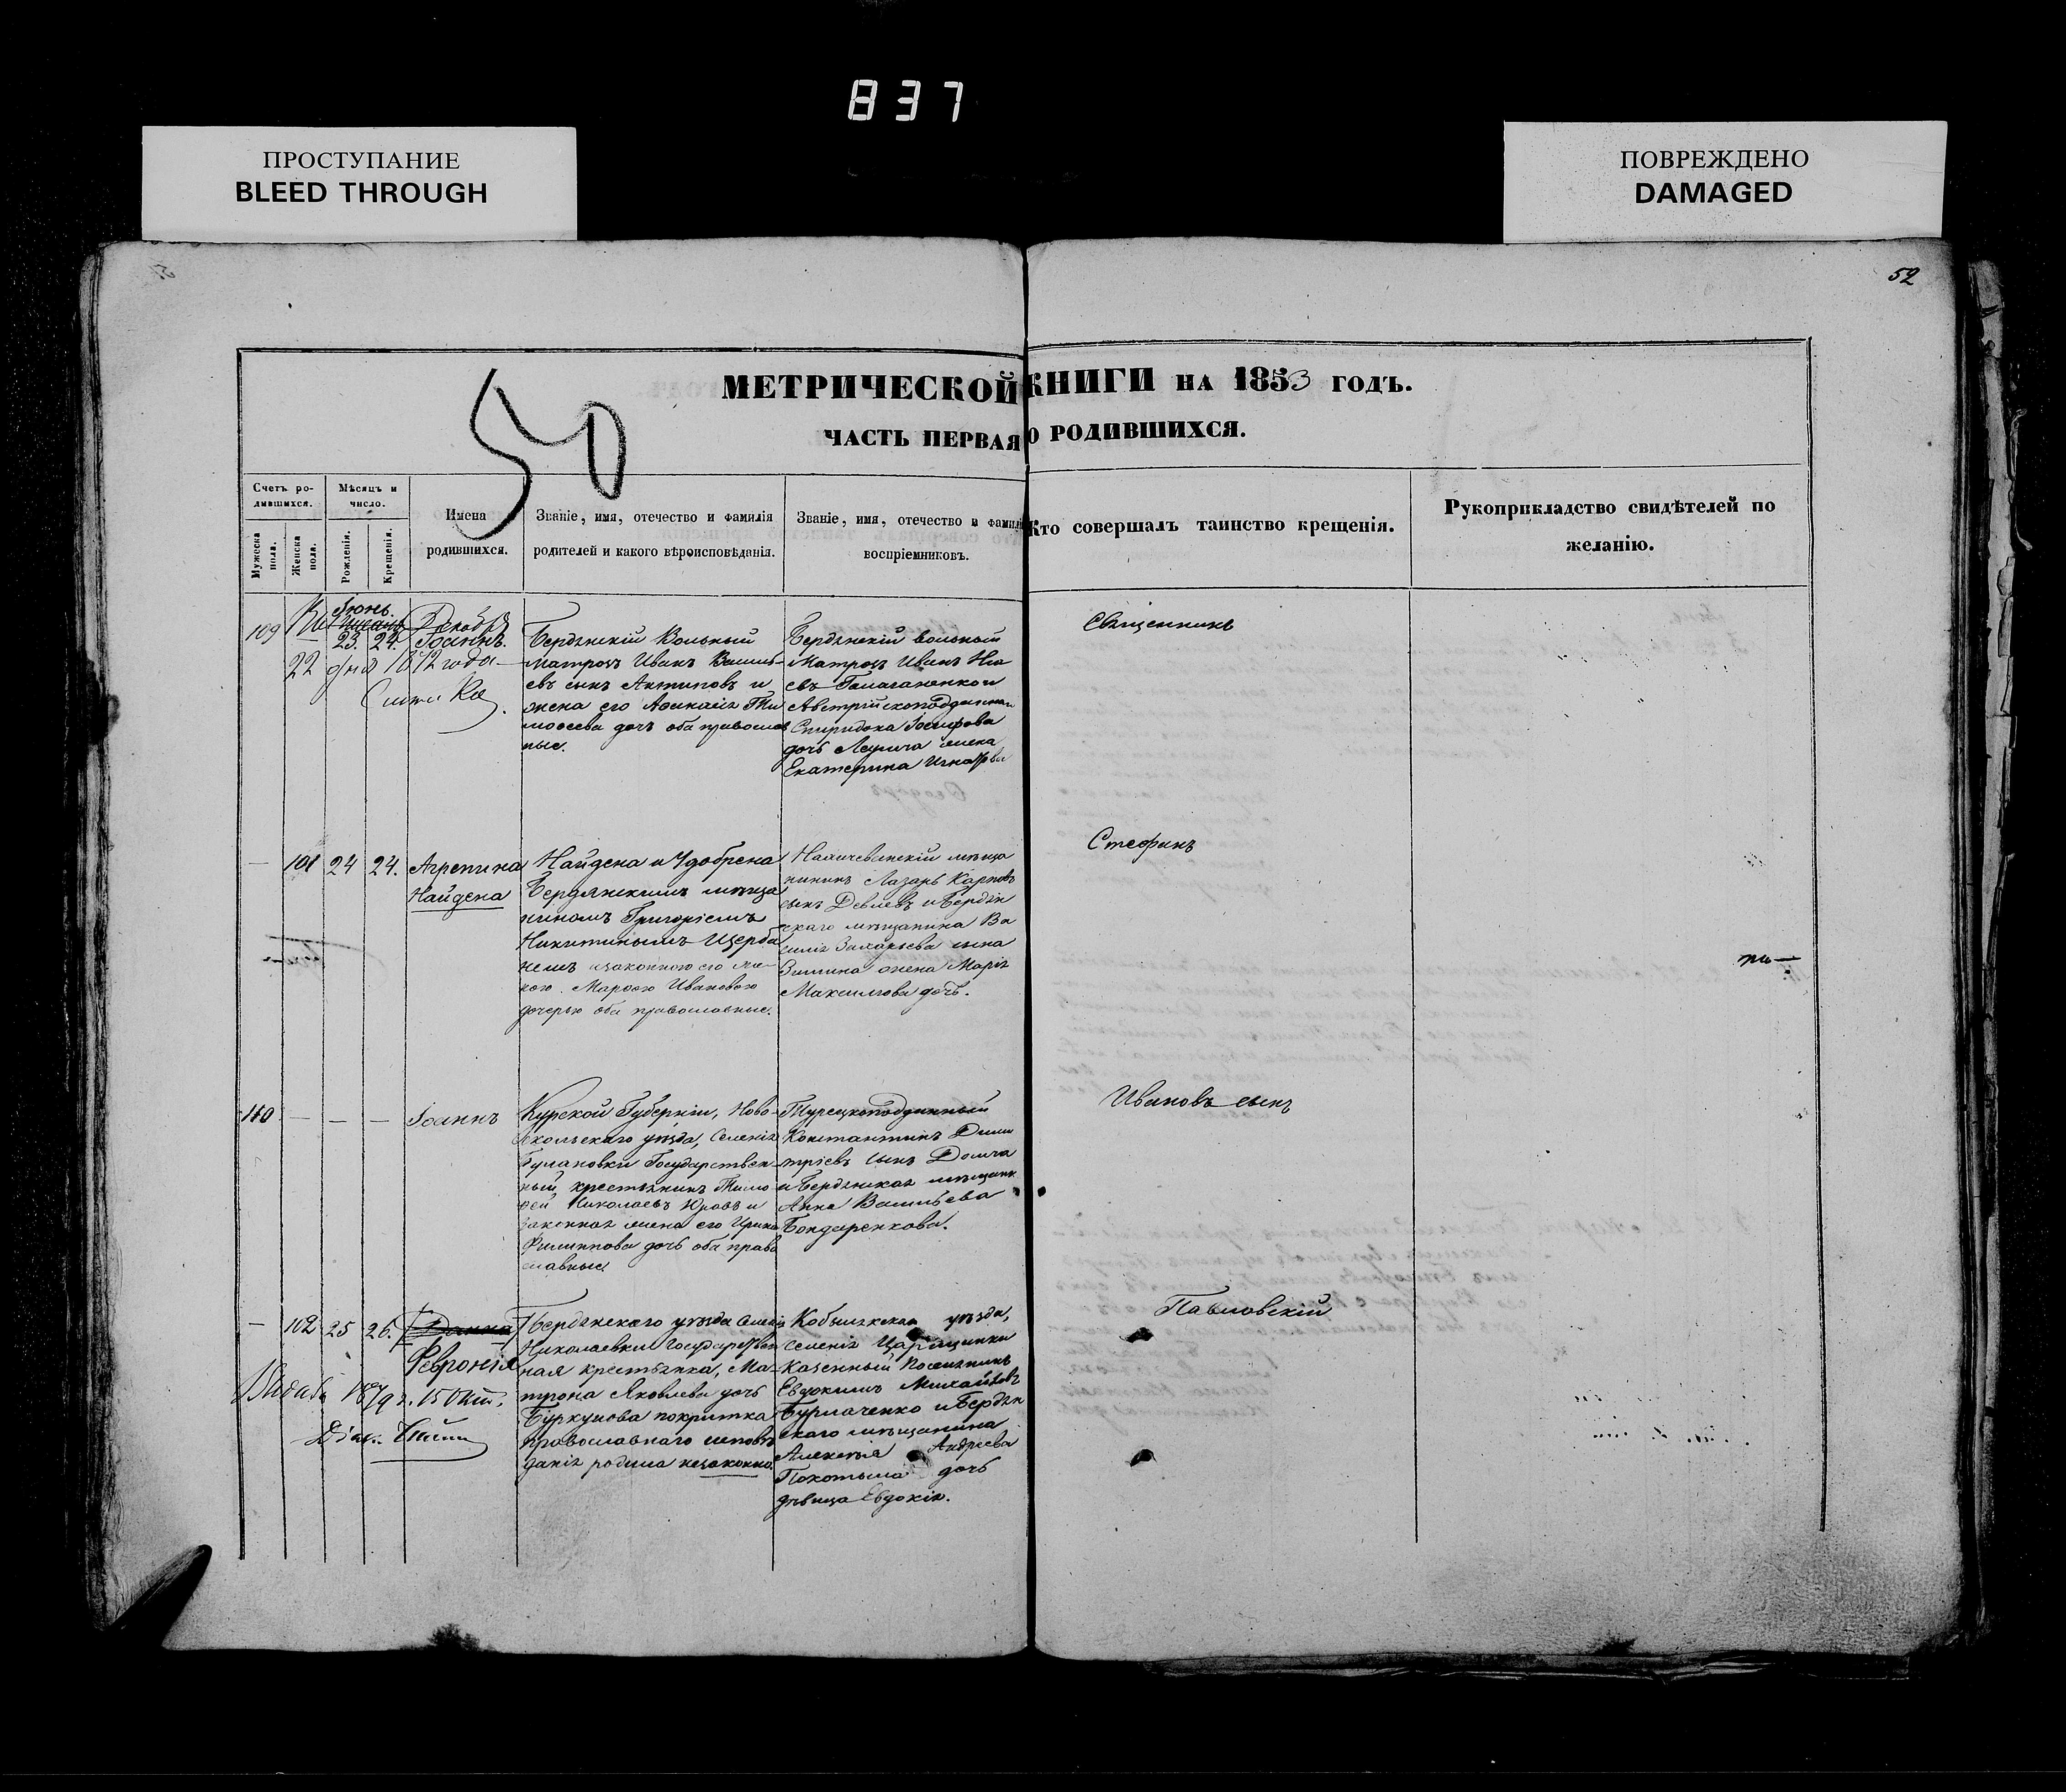 837
ПРОСТУПАНИЕ
BLEED THROUGH
ПОВРЕЖДЕНО
DAMAGED
52
50
МЕТРИЧЕСКОЙ КНИГИ НА 1853 ГОДЪ.
ЧАСТЬ ПЕРВАЯ О РОДИВШИХСЯ.
Счетъ ро-
дившихся.
Мужеска
пола.
Женска
пола.
Мѣсяцъ и
число.
Рожденія.
Крещенія.
Имена
родившихся.
Званіе, имя, отечество и фамилія
родителей и какого вѣроисповѣданія.
Званіе, имя, отечество и фамилія
воспріемниковъ.
Кто совершалъ таинство крещенія.
Рукоприкладство свидѣтелей по
желанію.
Іюнь.
109
23. 24. Іоаннъ.
Декабря
22 дня 1872 года
Бердянскій Вольный
матросъ Иванъ Василь-
евъ сынъ Антиповъ и
жена его Аѳанасія Ти
моѳеева дочь оба православ
ные.
Бердянскій вольный
Матросъ Иванъ
евъ и
Австрійскоподданнаго
Спиридона Іосифова
жена
Екатерина
Священникъ
101 24 24. Агрепина
Найдена
Найдена и Удобрена
Бердянскимъ мѣща
ниномъ Григоріемъ
Никитинымъ Щерба
немъ и законною его же-
ною Марѳою Ивановою
дочерью оба православные.
Нахичеванскій мѣща
нинъ Лазарь Карповъ
сынъ и Бердян
скаго мѣщанина Ва
силія Захарьева сына
Зимина жена Марія
Максимова дочь.
Стефанъ
110 — — — Іоаннъ
Курской Губерніи, Ново-
скольскаго уѣзда, Селенія
Государствен-
ный крестьянинъ Тимо
ѳей Николаевъ и
законная жена его Ирина
Филиппова дочь оба право
славные
Турецкоподданный
Константинъ Дими
тріевъ сынъ
и Бердянская мѣщанк
Анна Васильева
Бондаренкова.
Ивановъ сынъ
102 25 26.
Февронія
Бердянскаго уѣзда Селенія
Николаевки Государствен
ная крестьянка, Ма-
трона Яковлева дочь
покритка
православнаго исповѣ
данія родила незаконно.
Кобылякскаго уѣзда,
селенія Царичинки
Казенный Поселянинъ
Евдокимъ Михайловъ
Бурлаченко и Бердян
скаго мѣщанина
Алексѣя Андреева
дочь
дѣвица Евдокія.
Павловскій